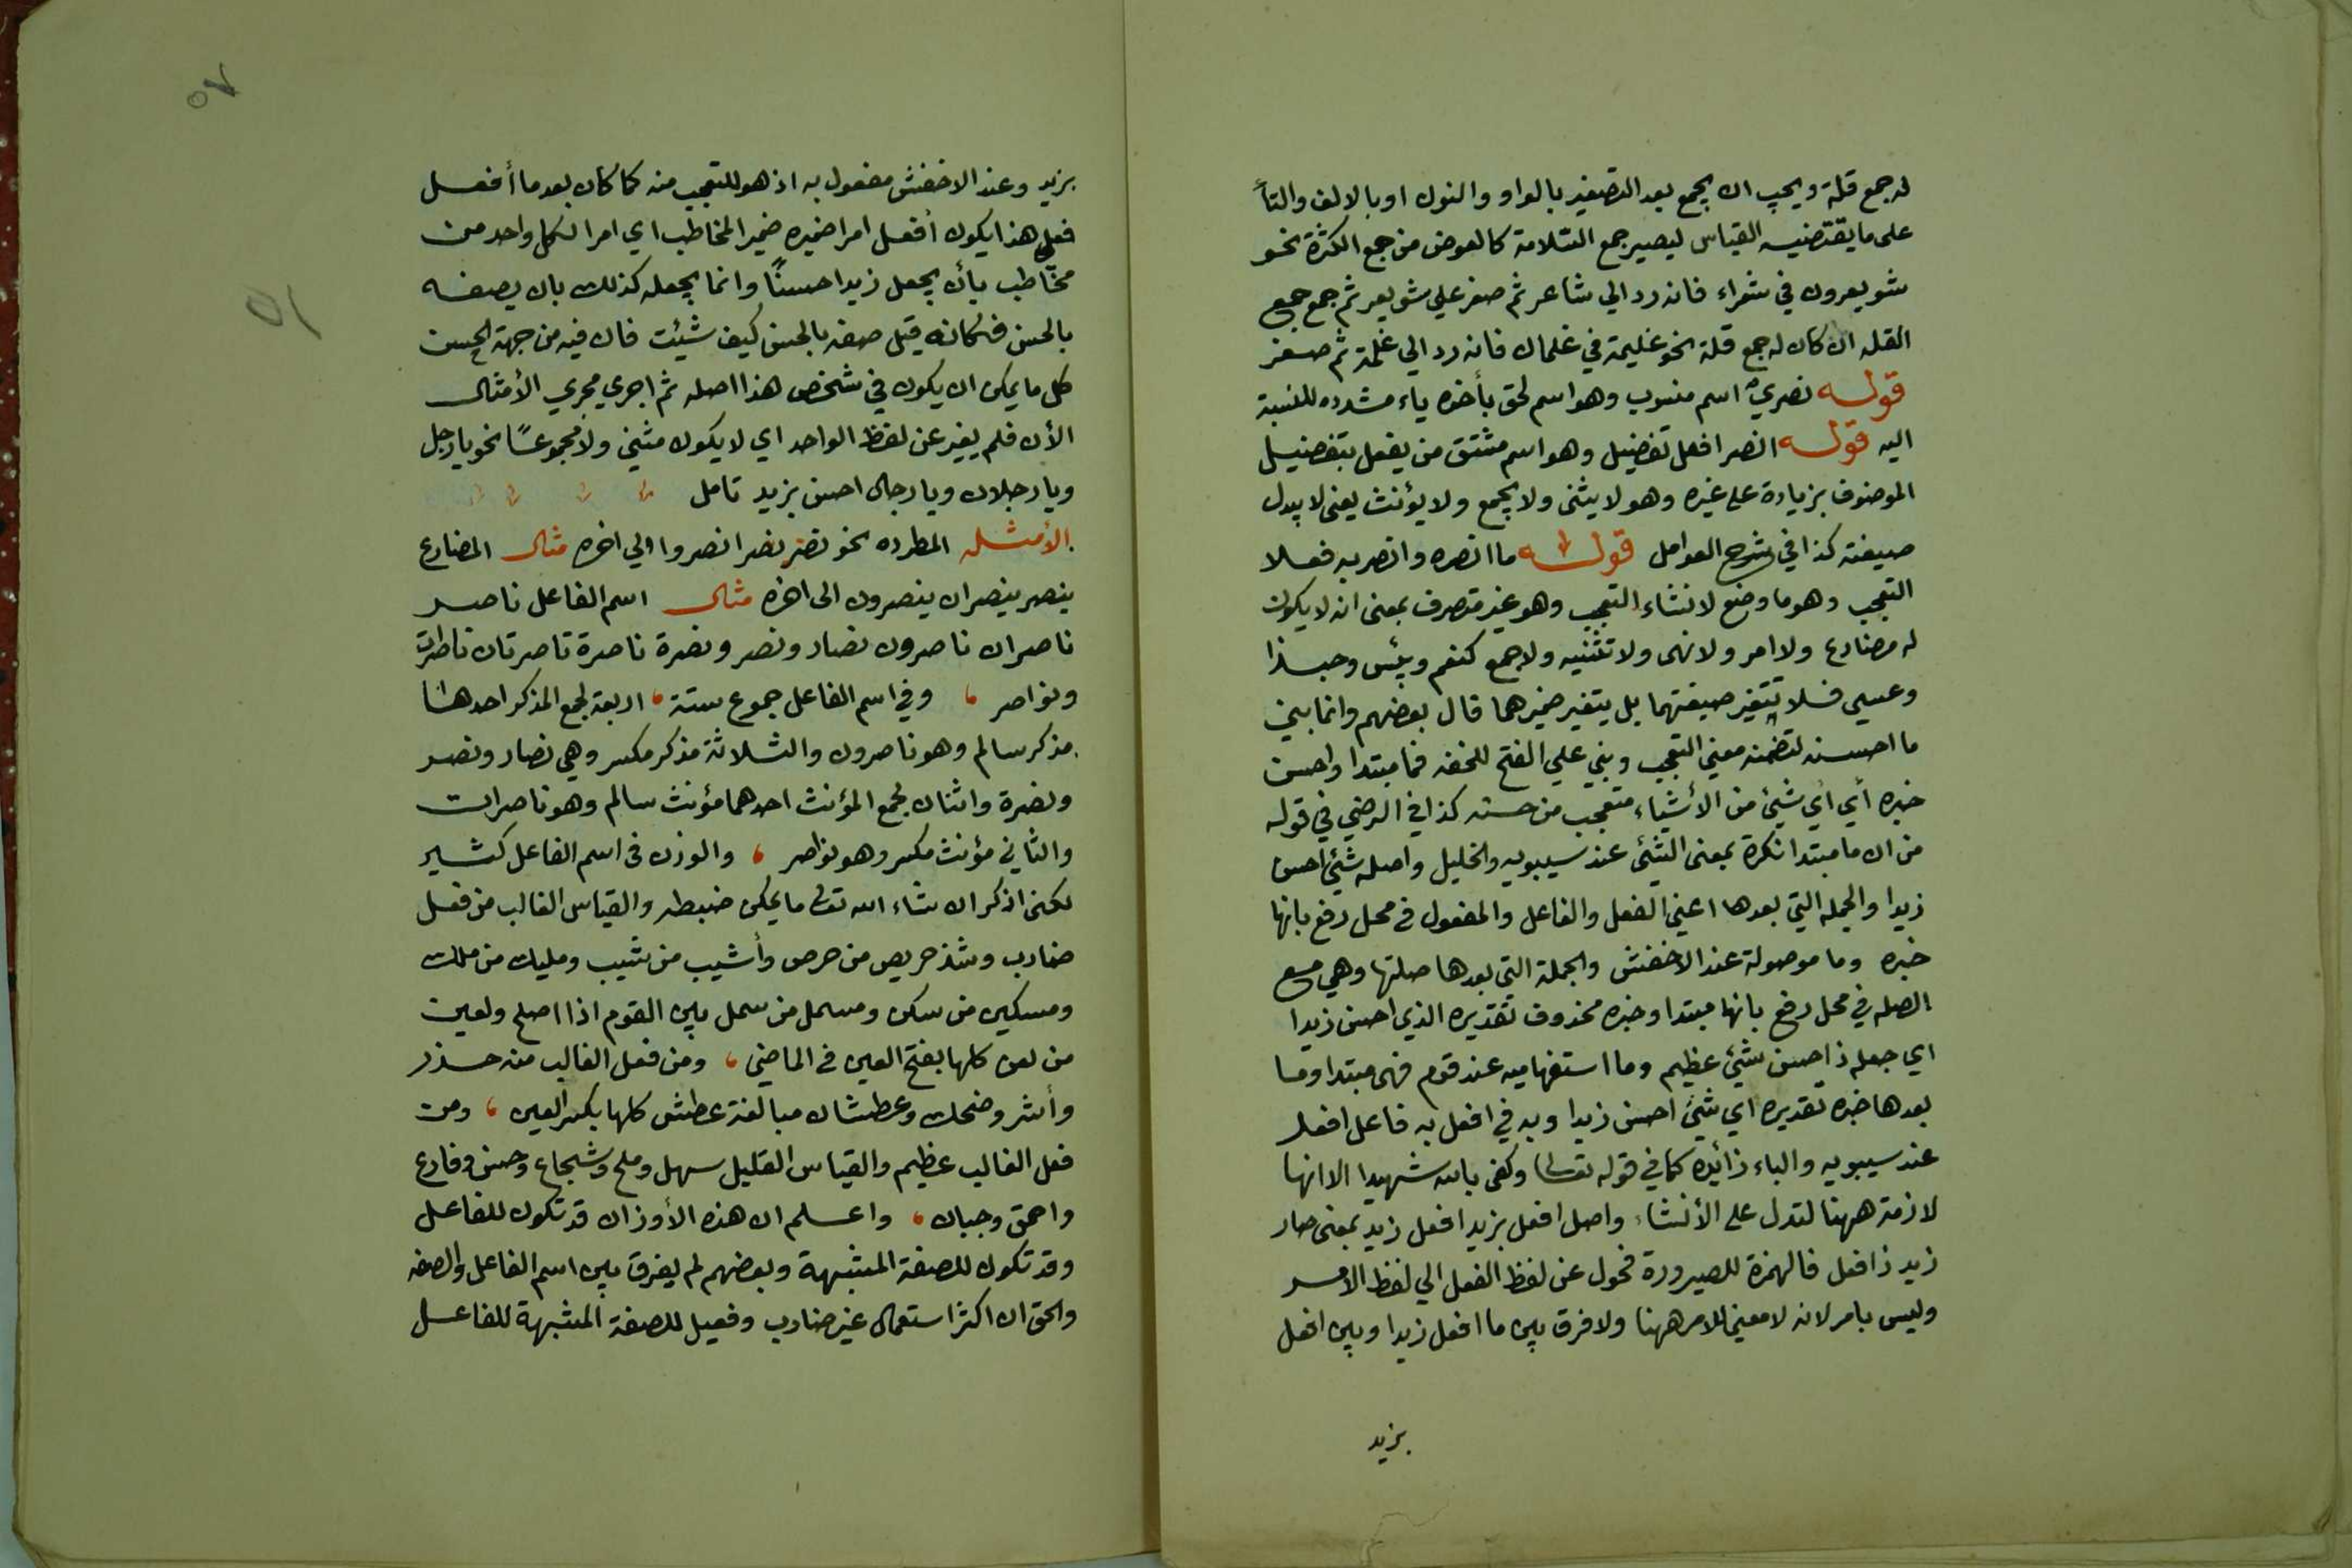 له جمع قلة ويجب ان يجمع بعد التصغير بالواو والنون او بالالف والتأ
على ما يقتضيه القياس ليصير جمع السّلامة كالعوض من جمع الكثرة نحو
شويعرون في شعراء فانه رد الي شاعر ثم صغر علي شويعر ثم جمع جمع
القله ان كان له جمع قلة نحو غليمة في غلمان فانه رد الي غلمة ثم صغر
قوله نصريّ اسم منسوب وهو اسم لحق بأخره ياء مشدده للنسبة
اليه قوله انصر افعل تفضيل وهو اسم مشتق من يفعل بتفضيل
الموصوف بزيادة على غيره وهو لا يثنى ولا يجمع ولا يؤنث يعنى لا يبدل
صيغته كذا في شرح العوامل قوله ما انصره وانصر به فعلا
التعجب وهو ما وضع لانشاء التعجب وهو غير متصرف بمعنى انه لا يكون
له مضارع ولا امر ولا نهى ولا تثنيه ولا جمع كنعم وبئس وحبذا
وعسى فلا تتغير صيغتهما بل يتغير ضميرهما قال بعضهم وانما بني
ما احسنه لتضمنه معني التعجب وبني علي الفتح للخفه فما مبتدا واحسن
خبره أي أي شيئ من الأشياء متعجب من حسنه كذا في الرضي في قوله
من ان ما مبتدا نكرة بمعنى الشئ عند سيبويه والخليل واصله شيئ احسن
زيدا والجمله التي بعدها اعني الفعل والفاعل والمفعول في محل رفع بانها
خبره وما موصولة عند الاخفش والجملة التى بعدها صلتها وهي مع
الصله في محل رفع بانها مبتدا وخبره محذوف تقديره الذي احسن زيدا
اي جعله ذا حسن شيئ عظيم وما استفهاميه عند قوم فهى مبتدا وما
بعدها خبره تقديره اي شئ احسن زيدا وبه في افعل به فاعل افعل
عند سيبويه والباء زائده كما في قوله تعالى وكفى بالله شهيدا الا انها
لازمة ههنا لتدل على الأنشاء واصل افعل بزيد افعل زيد بمعنى صار
زيد ذا فعل فالهمزة للصيرورة فحول عن لفظ الفعل الي لفظ الامر
وليس بامر لانه لا معني للامر ههنا ولا فرق بين ما افعل زيدا وبين افعل
بزيد
٥٧
٥١
بزيد وعند الاخفش مفعول به اذ هو للتعجب منه كما كان بعد ما أفعل
فعلى هذا يكون أفعل امرا ضميره ضمير المخاطب اي امر الكل واحد من
مخاطب بأن يجعل زيدا حسنًا وانما يجعله كذلك بان يصفه
بالحسن فكانه قيل صفه بالحسن كيف شيئت فان فيه من جهة الحسن
كل ما يمكن ان يكون في شخص هذا اصله ثم اجري مجري الأمثال
الأن فلم يغير عن لفظ الواحد اي لا يكون مثني ولا مجموعًا نحو يا رجل
ويا رجلان ويا رجال احسن بزيد تامل
الأمثله المطرده نحو نصر نصرا نصروا الي اخره مثال المضارع
ينصر ينصران ينصرون الى اخره مثال اسم الفاعل ناصر
ناصران ناصرون نصار ونصر ونصرة ناصرة ناصرتان ناصرات
ونواصر وفي اسم الفاعل جموع ستة اربعة لجمع المذكر احدها
مذكر سالم وهو ناصرون والثلاثة مذكر مكسر وهي نصار ونصر
ونصرة واثنان لجمع المؤنث احدهما مؤنث سالم وهو ناصرات
والثاني مؤنث مكسر وهو نواصر والوزن في اسم الفاعل كثير
لكنى اذكر ان شاء الله تعالى ما يمكن ضبطه والقياس الغالب من فعل
ضارب وشذ حريص من حرص وأشيب من شيب ومليك من ملك
ومسكين من سكن ومسمل من سمل بين القوم اذا اصلح ولعين
من لعن كلها بفتح العين في الماضي ومن فعل الغالب منه حذر
وأشر وضحك وعطشان مبالغة عطش كلها بكسر العين ومن
فعل الغالب عظيم والقياس القليل سهل وملح وشجاع وحسن وفارع
واحمق وجبان واعلم ان هذه الأوزان قد تكون للفاعل
وقد تكون للصفة المشبهة وبعضهم لم يفرق بين اسم الفاعل والصفه
والحق ان اكثر استعمال غير ضارب وفعيل للصفة المشبهة للفاعل